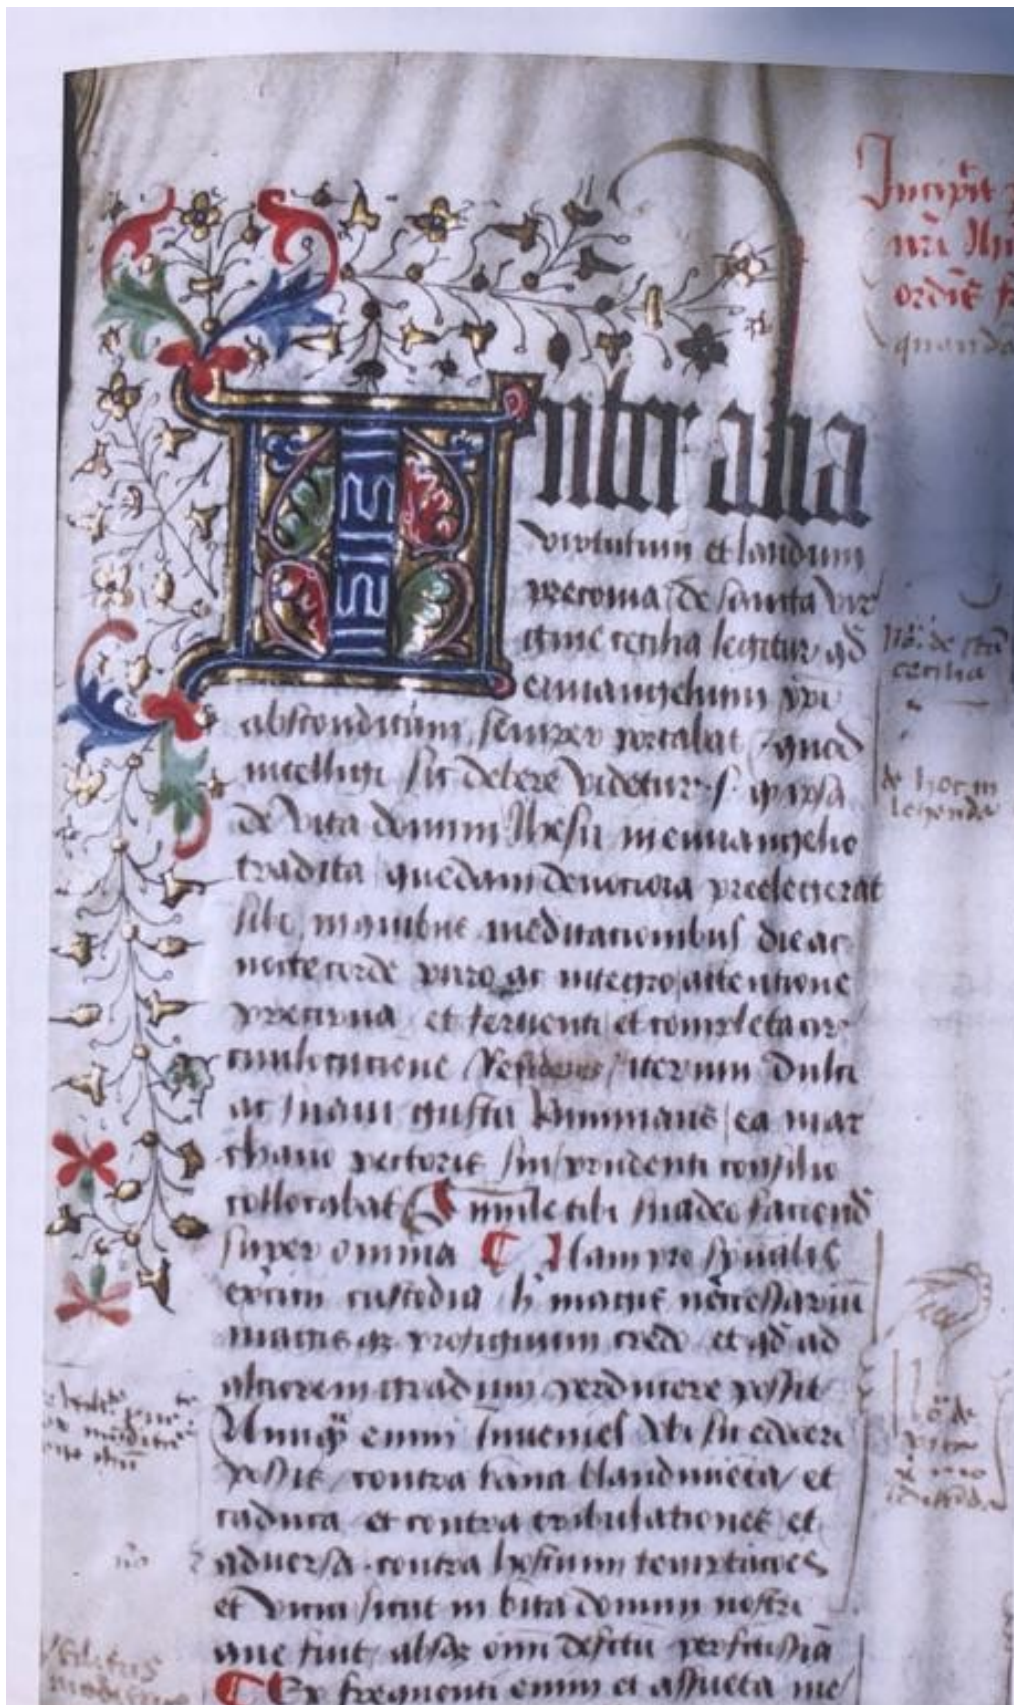 Inter alia
virtutum et laudum
preconia de sancta vir
gine cecilia legitur qd̄
ewangelium xp̄i
absconditum semper portabat / quod
intelligi sic debere videtur · s · ipsa
de vita domini Ihesu in ewangelio
tradita quedam devociora preelegerat
sibi, in quibus meditacionibus die ac
nocte corde puro ac integro / attentione
precipua et ferventi et completa cir
culacione iterum dulci
ac suavi gustu Ruminans / ea in ar
chano pectoris sui prudenti consilio
collocabat Simile tibi suadeo faciend̄
super omnia Nam pro sp̄ualis
exercicii custodia h̄ magis necessariū
magisqꝫ proficuum credo et qd̄ ad
altiorem gradum perducere possit
Nunqꝫ enim invenies ubi sic edoceri
possis / contra vana blandimenta / et
caduca et contra tribulationes et
adversa · contra hostium temptacōes
et vicia sicut in vita domini nostri
que fuit absqꝫ omī defectu perfectissīa
Ex frequenti enim et assueta me
Incipit
nr̄i Ihu
ordīs
quonda
No. de sctā
cecilia
de hoc in
legenda